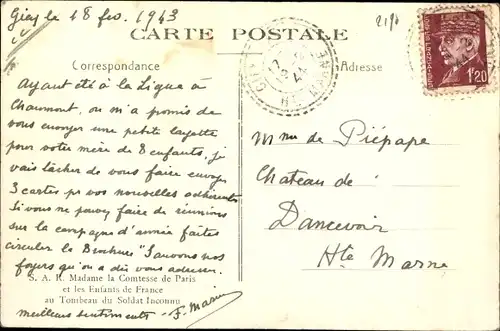 Giey le 18 fev. 1943
CARTE POSTALE
Correspondance
Adresse
1f20
Ayant été à la Ligue à
Chaumont, on m'a promis de
vous envoyer une petite layette
pour votre mère de 8 enfants, je
vais tâcher de vous faire envoyer
3 cartes pr vos nouvelles adhérentes
Si vous ne pouvez faire de réunions
sur la campagne d'année faites
circuler la Brochure "Sauvons nos
foyers" qu'on a dû vous adresser.
S. A. R. Madame la Comtesse de Paris
et les Enfants de France
au Tombeau du Soldat Inconnu
meilleurs sentiments - F. Marin
Mme de Piépape
Chateau de
Dancevoir
Hte Marne